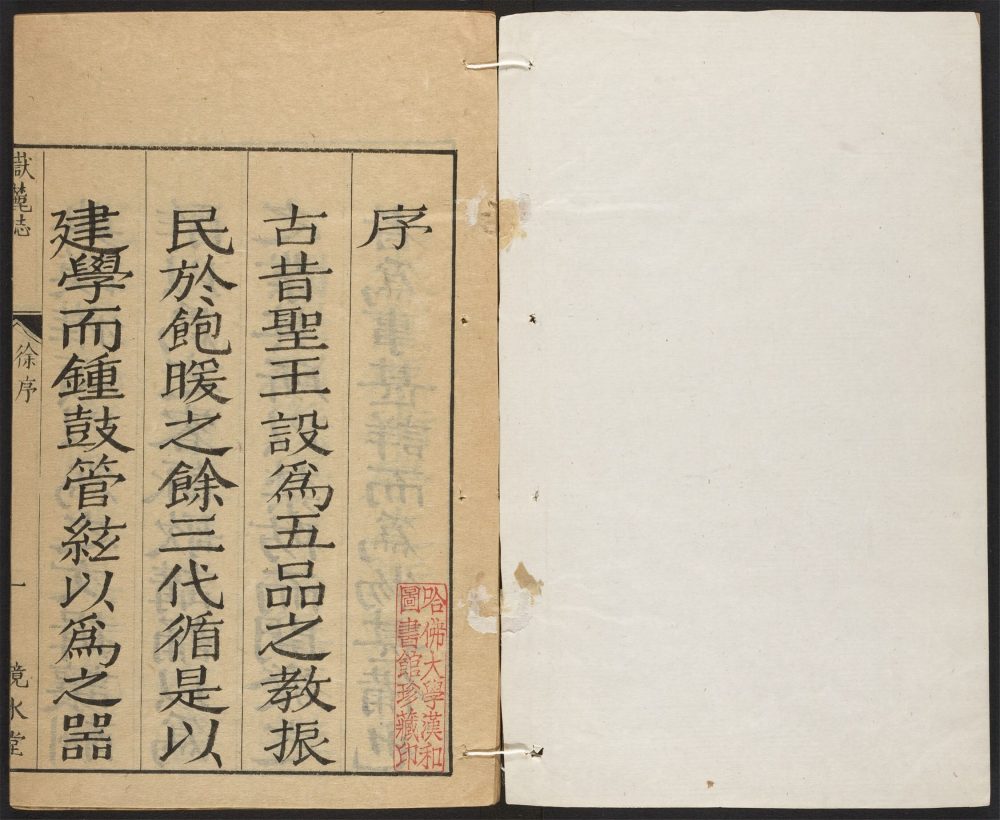 序
古昔聖王設爲五品之教振
民於飽暖之餘三代循是以
建學而鍾鼓管絃以爲之器
嶽麓志
徐序
一
鏡水堂
哈佛大學漢和
圖書館珍藏印